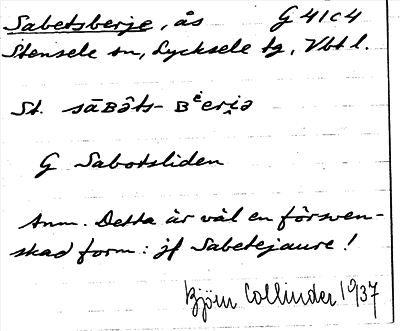 Sabetsberje, ås G 41 C 4
Stensele sn, Lycksele tg, Vbt l.
St. sāʙə̑ts- ʙėeri̯ə
G Sabotsliden
Anm. Detta är väl en försven-
skad form: jf Sabetejaure!
Björn Collinder 1937